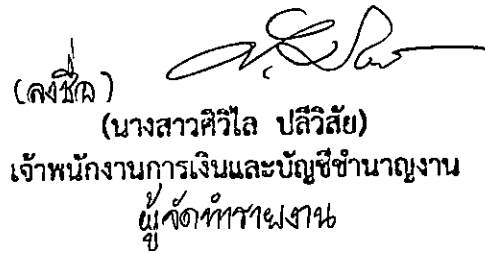 (ลงชื่อ)
(นางสาวศิวิไล ปลีวิสัย)
เจ้าพนักงานการเงินและบัญชีชำนาญงาน
ผู้จัดทำรายงาน